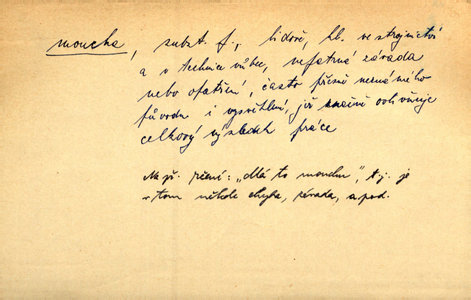 moucha, subst. f., lidově, zvl. ve strojnictví
a v technice vůbec, nepatrná závada
nebo opatření, často přesně neznámého
původu i vysvětlení, jež značně ovlivňuje
celkový výsledek práce
Např. rčení: „Má to mouchu", tj. je
v tom někde chyba, závada, apod.